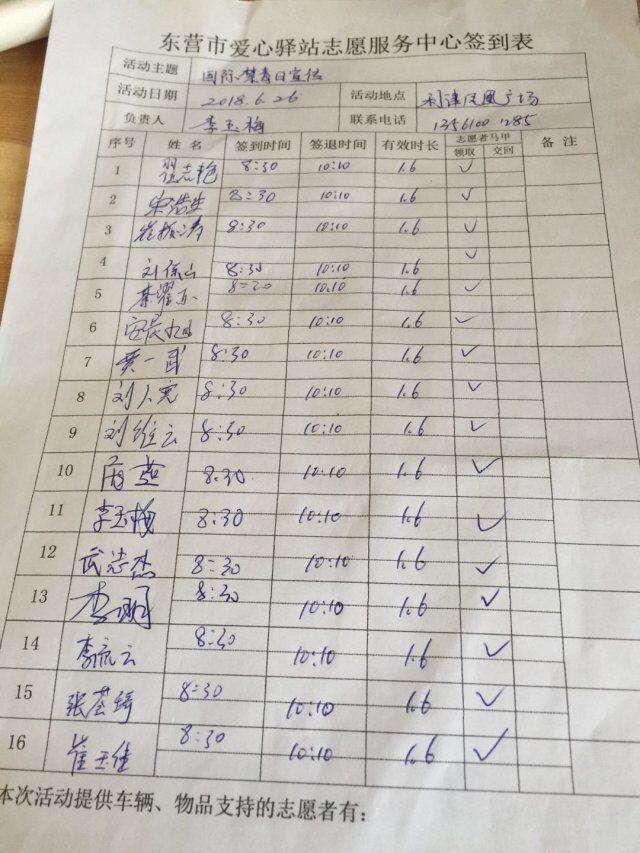 东营市爱心驿站志愿服务中心签到表
活动主题 国际禁毒日宣传
活动日期 2018.6.26 活动地点 利津凤凰广场
负责人 李玉梅 联系电话 1356100 1285
序号 姓名 签到时间 签退时间 有效时长 志愿者马甲 领取 交回 备注
1 翟志艳 8:30 10:10 1.6 ✓
2 宋浩生 8:30 10:10 1.6 ✓
3 崔振涛 8:30 10:10 1.6 ✓
4 8:30 10:10 1.6 ✓
5 8:30 10:10 1.6 ✓
6 8:30 10:10 1.6 ✓
7 8:30 10:10 1.6 ✓
8 8:30 10:10 1.6 ✓
9 刘维云 8:30 10:10 1.6 ✓
10 8:30 10:10 1.6 ✓
11 李玉梅 8:30 10:10 1.6 ✓
12 武志杰 8:30 10:10 1.6 ✓
13 8:30 10:10 1.6 ✓
14 8:30 10:10 1.6 ✓
15 8:30 10:10 1.6 ✓
16 崔玉佳 8:30 10:10 1.6 ✓
本次活动提供车辆、物品支持的志愿者有：